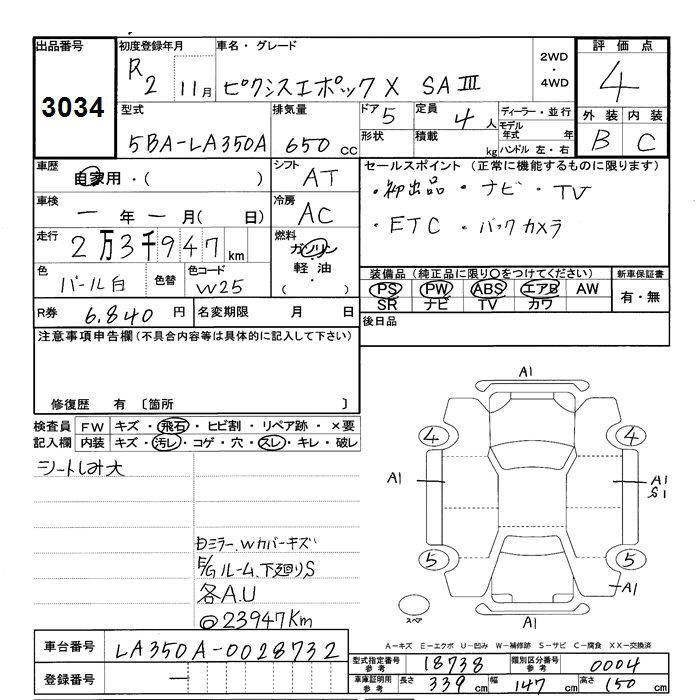 出品番号 初度登録年月 車名・グレード 2WD・4WD 評価点
3034 R2 11月 ピクシスエポック X SAIII 4
型式 排気量 ドア 5 定員 4人 ディーラー・並行 外装 内装
5BA-LA350A 650cc 形状 積載 kg モデル年式 年 ハンドル 左・右 B C
車歴 自家用・( ) シフト AT セールスポイント (正常に機能するものに限ります)
・初出品 ・ナビ ・TV
車検 一年一月( 日) 冷房 AC ・ETC ・バックカメラ
走行 2万3千947km 燃料 ガソリン 軽油 ( )
色 パール白 色替 色コード W25
装備品 (純正品に限り○をつけてください) 新車保証書
PS PW ABS エアB AW 有・無
SR ナビ TV カワ
R券 6.840円 名変期限 月 日 後日品
注意事項申告欄 (不具合内容等は具体的に記入して下さい)
修復歴 有 〔箇所 〕
検査員 FW キズ・飛石・ヒビ割・リペア跡・×要
記入欄 内装 キズ・汚レ・コゲ・穴・スレ・キレ・破レ
シートしみ大
ミラー.Wカバーキズ
E/Gルーム.下廻りS
各A.U
@23947Km
A1
4 4
A1 A1
S1
5 5
A1
スペア A1
A-キズ E-エクボ U-凹み W-補修跡 S-サビ C-腐食 XX-交換済
車台番号 LA350A-0028732
型式指定番号 参考 18738 類別区分番号 参考 0004
登録番号 一
車庫証明用 参考 長さ 339cm 幅 147cm 高さ 150cm